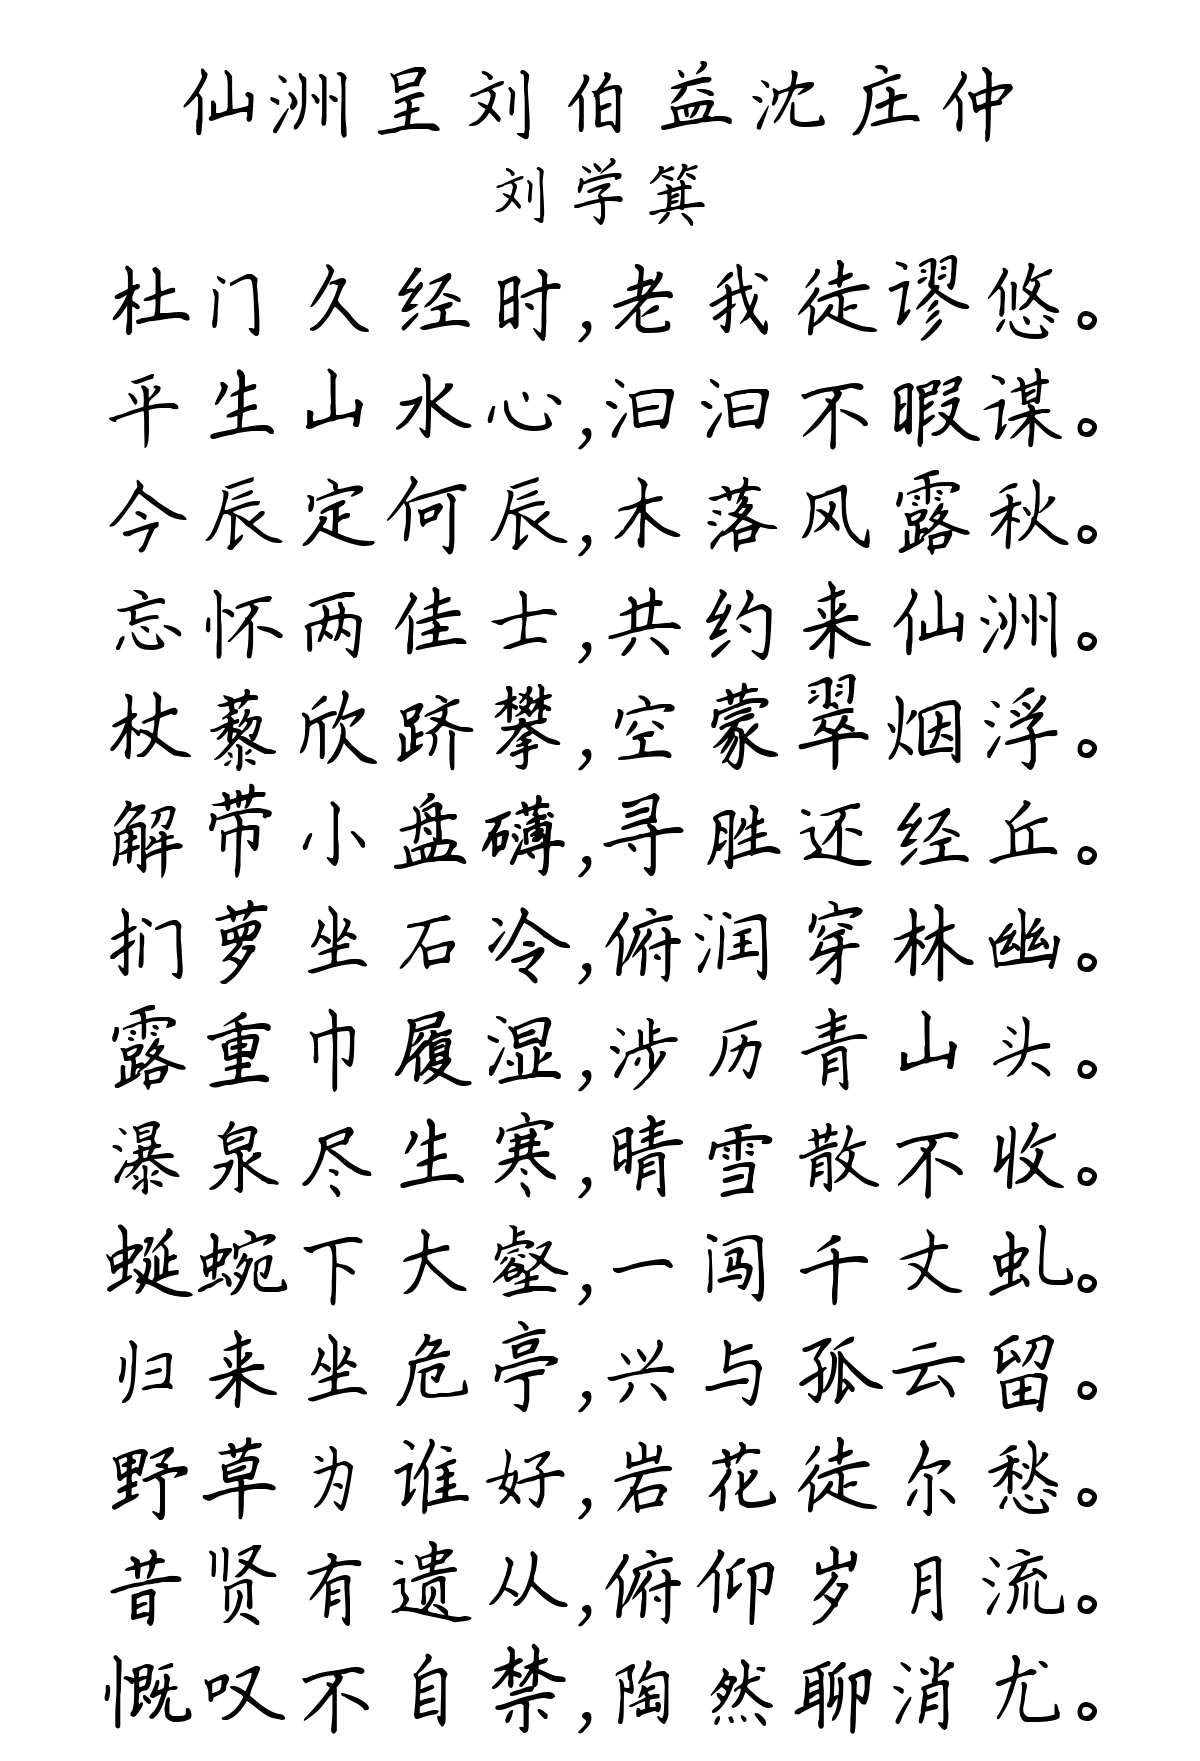 仙洲呈刘伯益沈庄仲
刘学箕
杜门久经时,老我徒谬悠。
平生山水心,汩汩不暇谋。
今辰定何辰,木落风露秋。
忘怀两佳士,共约来仙洲。
杖藜欣跻攀,空蒙翠烟浮。
解带小盘礴,寻胜还经丘。
扪萝坐石冷,俯润穿林幽。
露重巾履湿,涉历青山头。
瀑泉尽生寒,晴雪散不收。
蜒蜿下大壑,一闯千丈虬。
归来坐危亭,兴与孤云留。
野草为谁好,岩花徒尔愁。
昔贤有遗从,俯仰岁月流。
慨叹不自禁,陶然聊消尤。